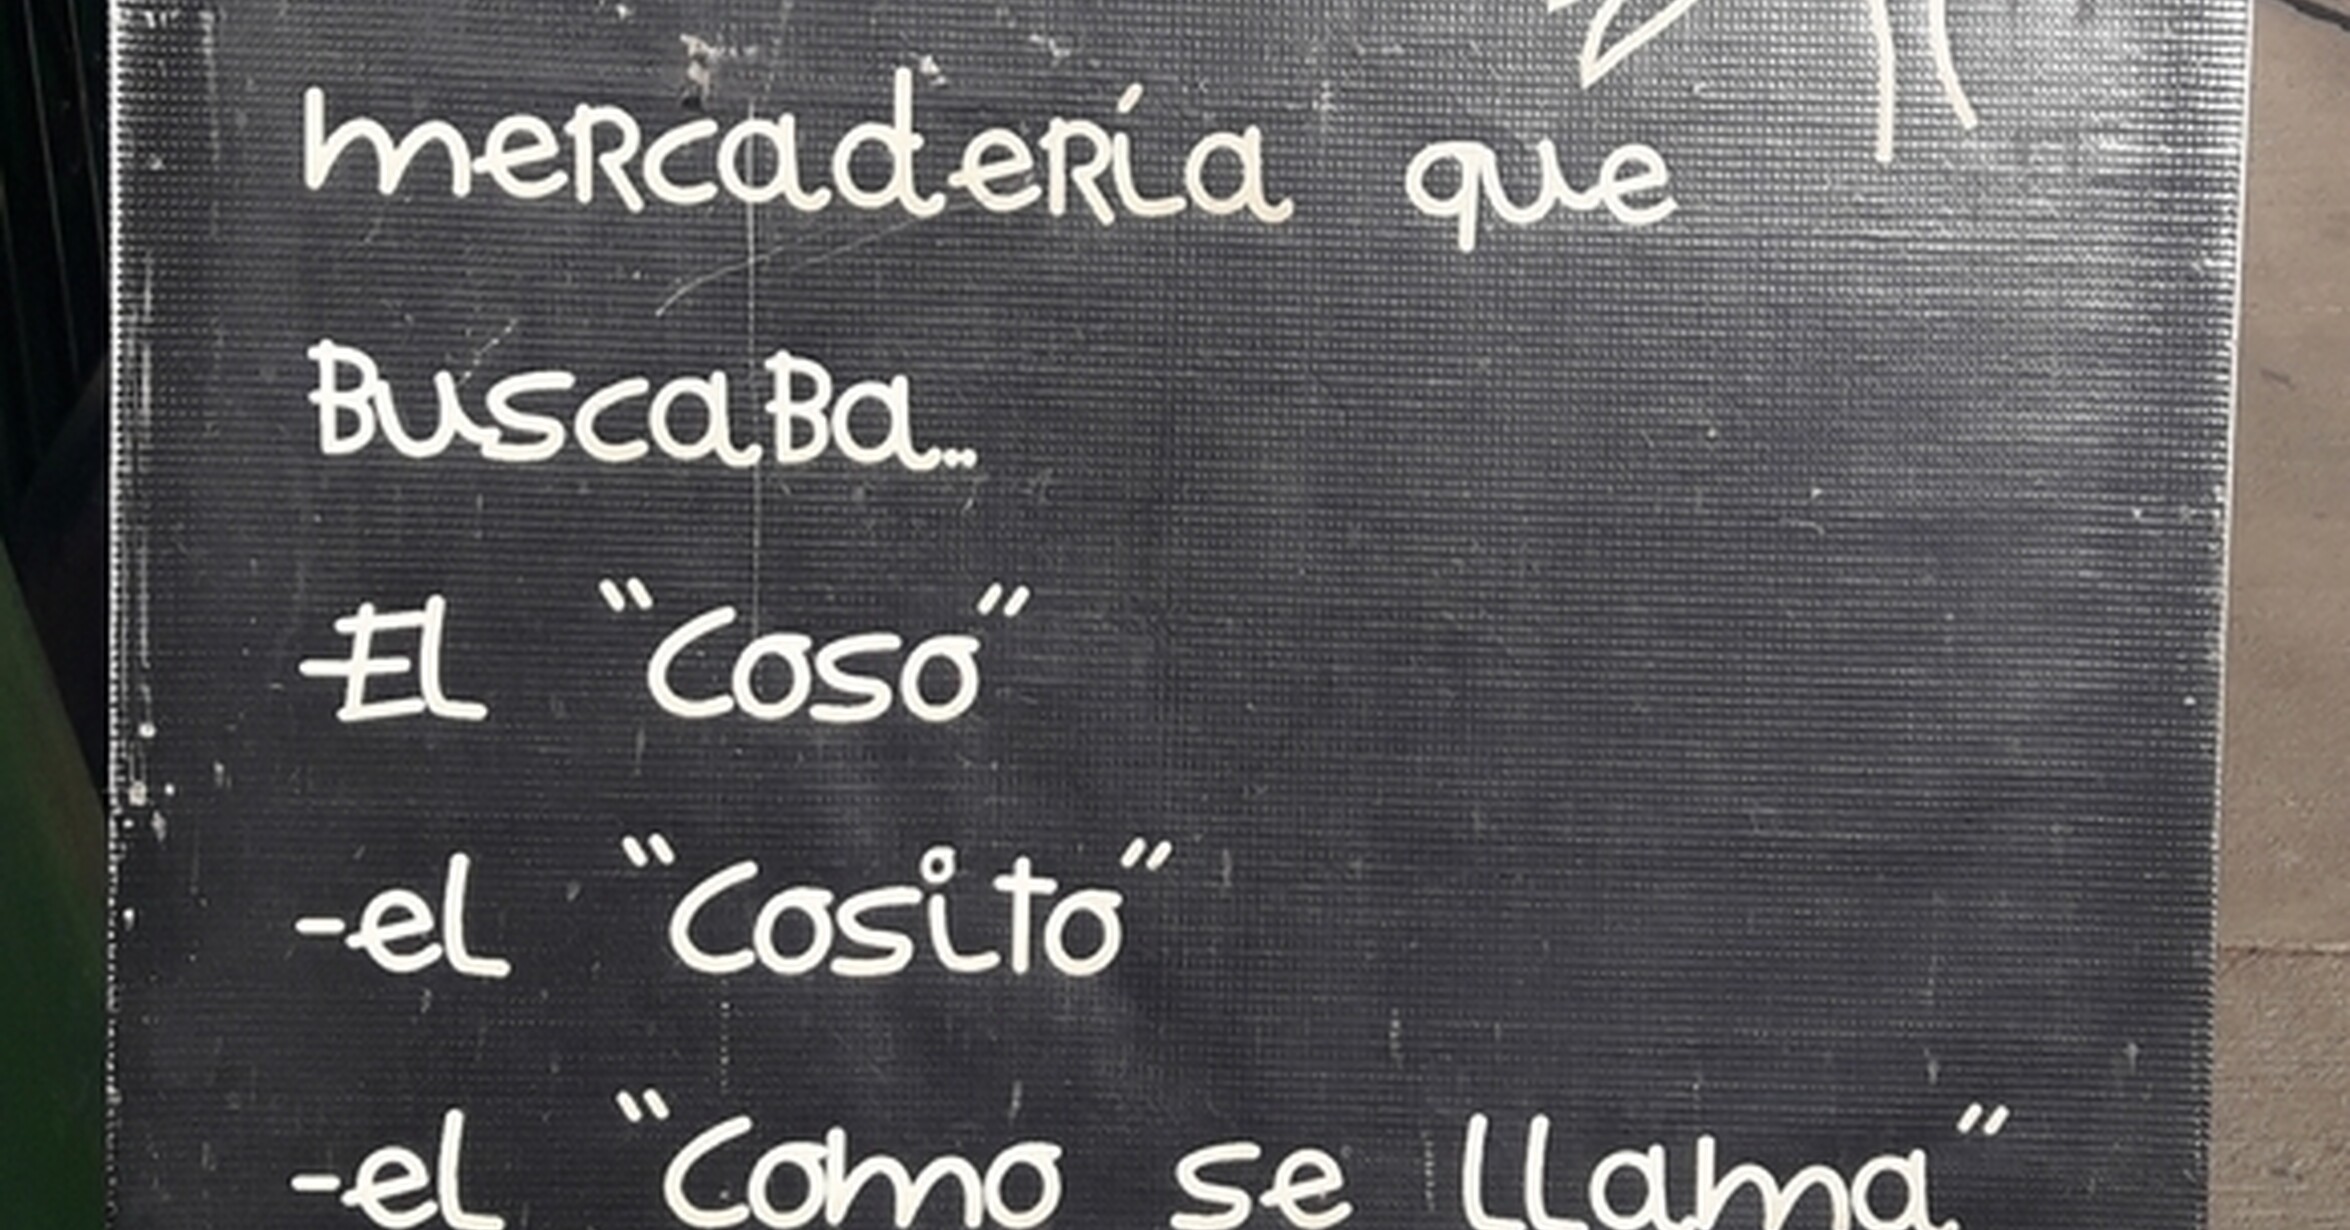 mercadería que
Buscaba...
-El "Coso"
-el "Cosito"
-el "Como se llama"